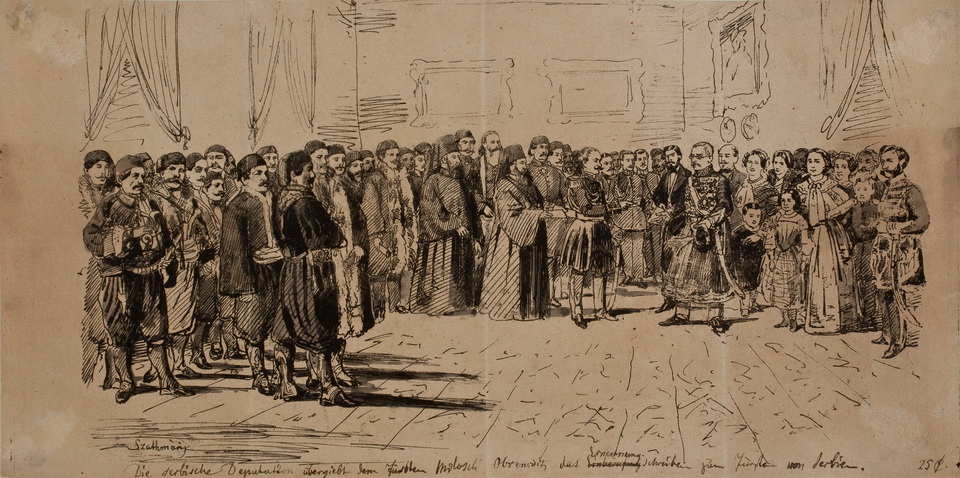 Szathmári
Die serbische Deputation übergiebt dem Fürsten Milosch Obrenovitz das Ernennungsschreiben zum Fürsten von Serbien. 25